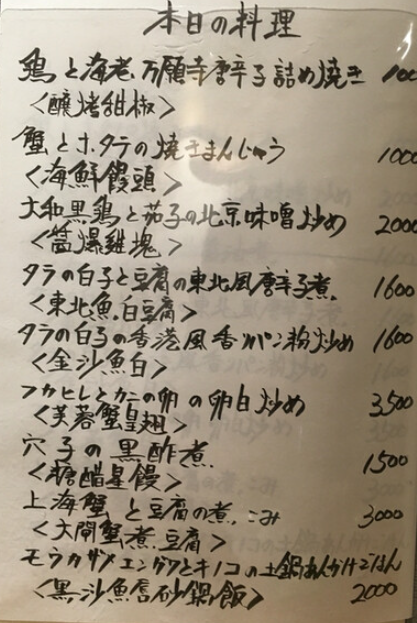 本日の料理
鶏と海老万願寺唐辛子詰め焼き
<釀烤甜椒>
蟹とホタテの焼きまんじゅう 1000
<海鮮饅頭>
大和黒鶏と茄子の北京味噌炒め 2000
<醤爆雞塊>
タラの白子と豆腐の東北風唐辛子煮 1600
<東北魚白豆腐>
タラの白子の香港風香りパン粉炒め 1600
<金沙魚白>
フカヒレとカニの卵の卵白炒め 3500
<芙蓉蟹皇翅>
穴子の黒酢煮 1500
<糖醋星鰻>
上海蟹と豆腐の煮こみ 3000
<大閘蟹煮豆腐>
モウカザメエンガワとキノコの土鍋あんかけごはん
<黒沙魚唇砂鍋飯> 2000